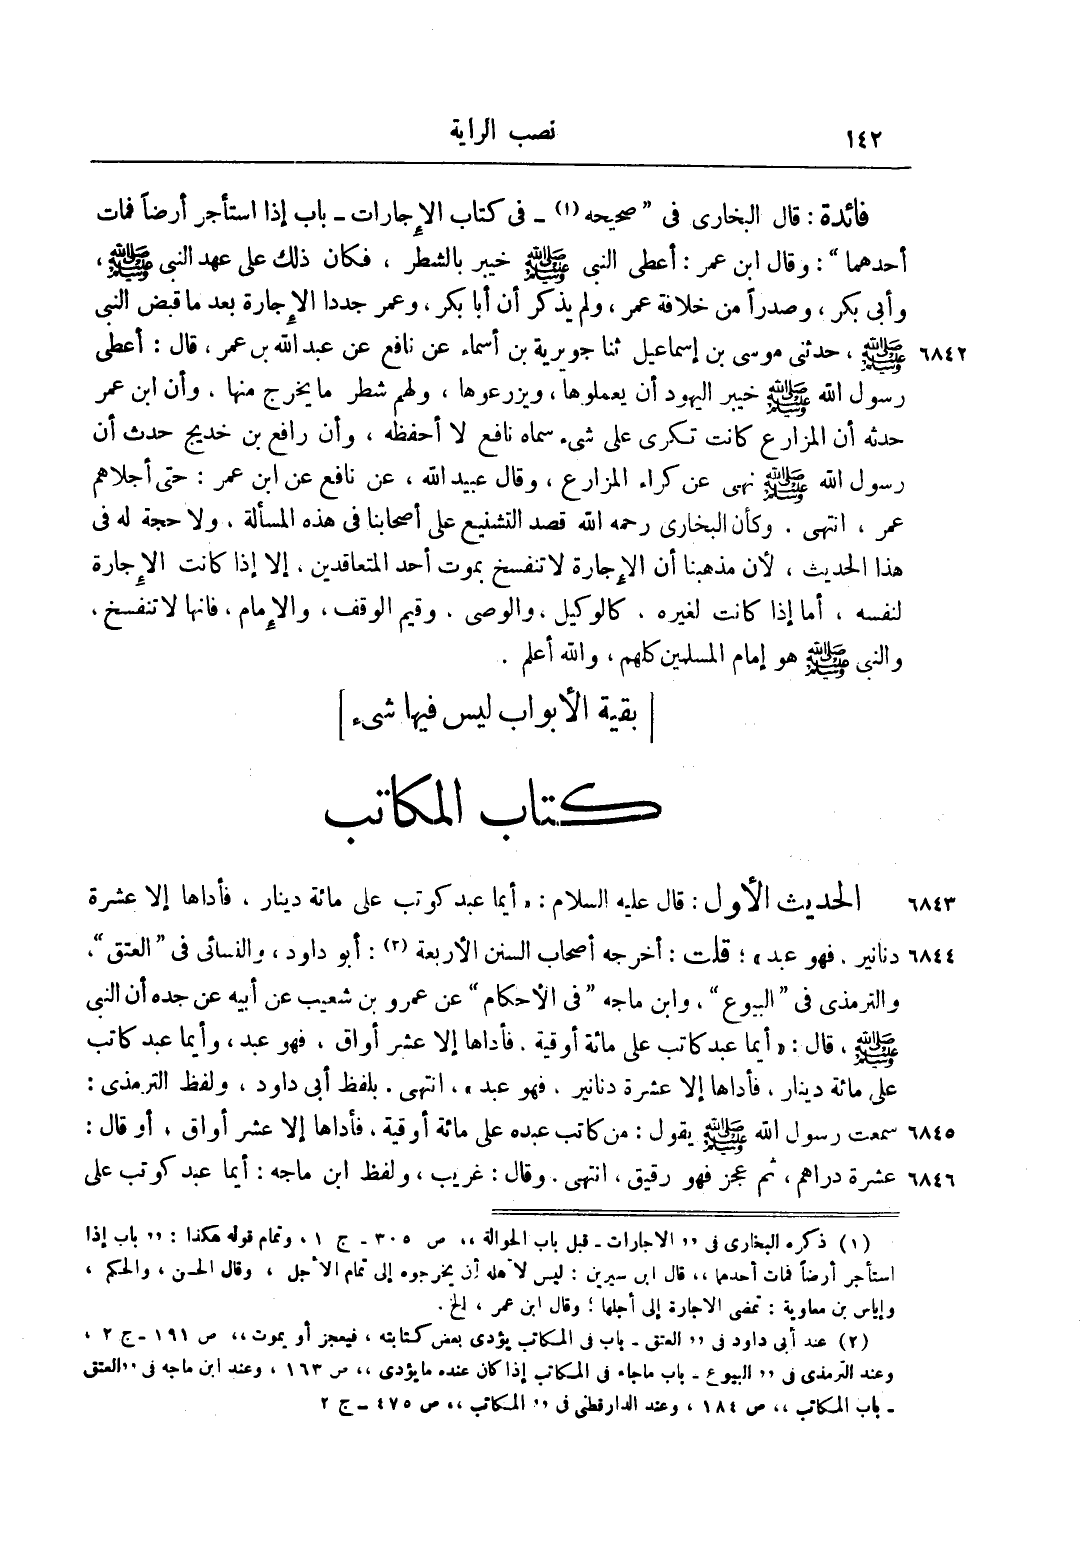 ١٤٢ نصب الراية
فائدة : قال البخارى فى " صحيحه (١) ـ فى كتاب الإجارات ـ باب إذا استأجر أرضاً فمات
أحدهما " : وقال ابن عمر : أعطى النبى ﷺ خيبر بالشطر ، فكان ذلك على عهد النبى ﷺ ،
وأبى بكر ، وصدراً من خلافة عمر ، ولم يذكر أن أبا بكر ، وعمر جددا الإجارة بعد ما قبض النبى
٦٨٤٢ ﷺ ، حدثنى موسى بن إسماعيل ثنا جويرية بن أسماء عن نافع عن عبد الله بن عمر ، قال : أعطى
رسول الله ﷺ خيبر اليهود أن يعملوها ، ويزرعوها ، ولهم شطر ما يخرج منها . وأن ابن عمر
حدثه أن المزارع كانت تكرى على شىء سماه نافع لا أحفظه ، وأن رافع بن خديج حدث أن
رسول الله ﷺ نهى عن كراء المزارع ، وقال عبيد الله ، عن نافع عن ابن عمر : حتى أجلاهم
عمر ، انتهى . وكأن البخارى رحمه الله قصد التشنيع على أصحابنا فى هذه المسألة ، ولا حجة له فى
هذا الحديث ، لأن مذهبنا أن الإجارة لا تنفسخ بموت أحد المتعاقدين ، إلا إذا كانت الإجارة
لنفسه ، أما إذا كانت لغيره ، كالوكيل ، والوصى ، وقيم الوقف ، والإمام ، فانها لا تنفسخ ،
والنبى ﷺ هو إمام المسلمين كلهم ، والله أعلم .
[ بقية الأبواب ليس فيها شىء ]
كتاب المكاتب
٦٨٤٣ الحديث الأول : قال عليه السلام : « أيما عبد كوتب على مائة دينار ، فأداها إلا عشرة
٦٨٤٤ دنانير ، فهو عبد » ؛ قلت : أخرجه أصحاب السنن الأربعة (٢) : أبو داود ، والنسائى فى " العتق " ،
والترمذى فى " البيوع " ، وابن ماجه " فى الأحكام " عن عمرو بن شعيب عن أبيه عن جده أن النبى
ﷺ ، قال : « أيما عبد كاتب على مائة أوقية . فأداها إلا عشر أواق ، فهو عبد ، وأيما عبد كاتب
على مائة دينار ، فأداها إلا عشرة دنانير ، فهو عبد » ، انتهى . بلفظ أبى داود ، ولفظ الترمذى :
٦٨٤٥ سمعت رسول الله ﷺ يقول : من كاتب عبده على مائة أوقية ، فأداها إلا عشر أواق ، أو قال :
٦٨٤٦ عشرة دراهم ، ثم عجز فهو رقيق ، انتهى . وقال : غريب ، ولفظ ابن ماجه : أيما عبد كوتب على
(١) ذكره البخارى فى ,, الاجارات ـ قبل باب الحوالة ,, ص ٣٠٥ ـ ج ١ ، وتمام قوله هكذا : ,, باب إذا
استأجر أرضاً فمات أحدهما ,, قال ابن سيرين : ليس لأهله أن يخرجوه إلى تمام الأجل ، وقال الحسن ، والحكم ،
وإياس بن معاوية : تمضى الاجارة إلى أجلها ؛ وقال ابن عمر ، الخ .
(٢) عند أبى داود فى ,, العتق ـ باب فى المكاتب يؤدى بعض كتابته ، فيعجز أو يموت ,, ص ١٩١ ـ ج ٢ ،
وعند الترمذى فى ,, البيوع ـ باب ماجاء فى المكاتب إذا كان عنده ما يؤدى ,, ص ١٦٣ ، وعند ابن ماجه فى ,, العتق
ـ باب المكاتب ,, ص ١٨٤ ، وعند الدارقطنى فى ,, المكاتب ,, ص ٤٧٥ ـ ج ٢